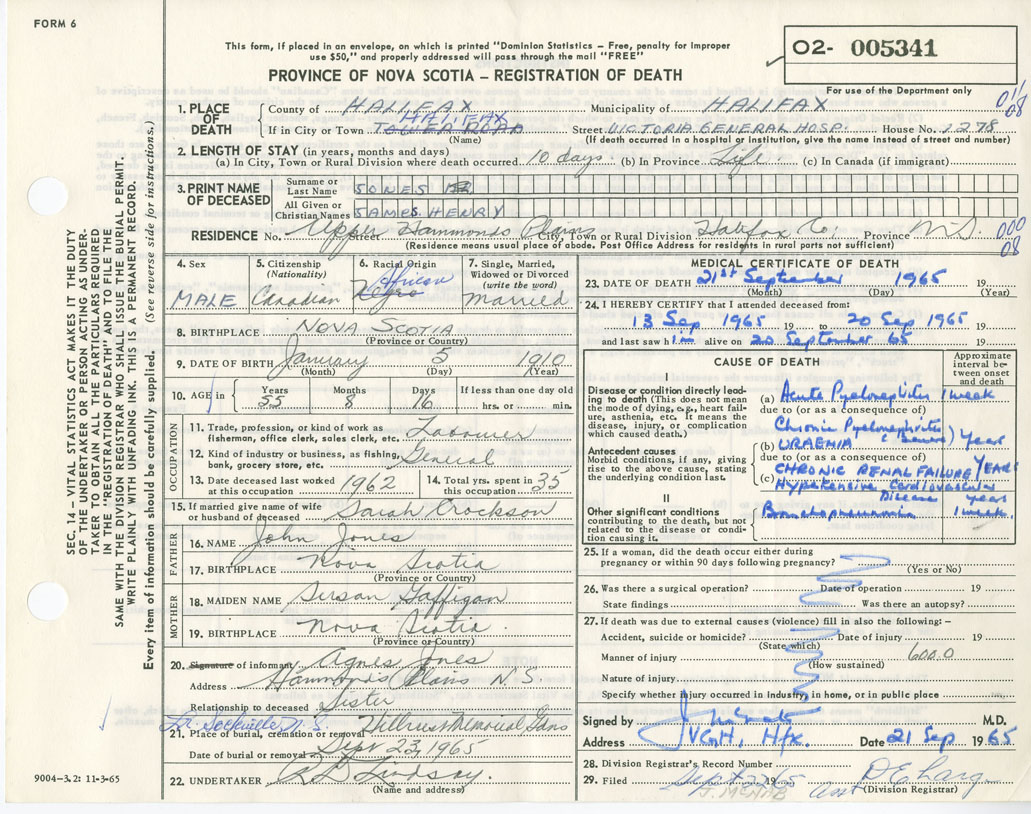 FORM 6
This form, if placed in an envelope, on which is printed "Dominion Statistics – Free, penalty for improper
use $50," and properly addressed will pass through the mail "FREE"
PROVINCE OF NOVA SCOTIA – REGISTRATION OF DEATH
02- 005341
For use of the Department only
SEC. 14 – VITAL STATISTICS ACT MAKES IT THE DUTY
OF THE UNDERTAKER OR PERSON ACTING AS UNDER-
TAKER TO OBTAIN ALL THE PARTICULARS REQUIRED
IN THE "REGISTRATION OF DEATH" AND TO FILE THE
SAME WITH THE DIVISION REGISTRAR WHO SHALL ISSUE THE BURIAL PERMIT.
WRITE PLAINLY WITH UNFADING INK. THIS IS A PERMANENT RECORD.
Every item of information should be carefully supplied. (See reverse side for instructions.)
1. PLACE OF DEATH
County of HALIFAX Municipality of HALIFAX
HALIFAX
If in City or Town TOWER ROAD Street VICTORIA GENERAL HOSP. House No. 1278
(Name) (If death occurred in a hospital or institution, give the name instead of street and number)
2. LENGTH OF STAY (in years, months and days)
(a) In City, Town or Rural Division where death occurred 10 days. (b) In Province Life. (c) In Canada (if immigrant)
3. PRINT NAME OF DECEASED
Surname or Last Name JONES
All Given or Christian Names JAMES HENRY
RESIDENCE No. Upper Hammonds Plains Street City, Town or Rural Division Halifax Co. Province N.S.
(Residence means usual place of abode. Post Office Address for residents in rural parts not sufficient)
000
08
4. Sex
MALE
5. Citizenship
(Nationality)
Canadian
6. Racial Origin
African
Negro
7. Single, Married,
Widowed or Divorced
(write the word)
married
8. BIRTHPLACE NOVA SCOTIA
(Province or Country)
9. DATE OF BIRTH January 5 1910
(Month) (Day) (Year)
10. AGE in
Years Months Days If less than one day old
55 8 16 hrs. or min.
OCCUPATION
11. Trade, profession, or kind of work as
fisherman, office clerk, sales clerk, etc. Labourer
12. Kind of industry or business, as fishing,
bank, grocery store, etc. General
13. Date deceased last worked
at this occupation 1962
14. Total yrs. spent in
this occupation 35
15. If married give name of wife
or husband of deceased Sarah Crockson
FATHER
16. NAME John Jones
17. BIRTHPLACE Nova Scotia
(Province or Country)
MOTHER
18. MAIDEN NAME Susan Gaffigan
19. BIRTHPLACE Nova Scotia.
(Province or Country)
20. Signature of informant Agnes Jones
Address Hammonds Plains N.S.
Relationship to deceased Sister
Sackville N.S.
21. Place of burial, cremation or removal Memorial Gdns
Date of burial or removal Sept 23, 1965
22. UNDERTAKER Lindsay.
(Name and address)
9004-3.2: 11-3-65
MEDICAL CERTIFICATE OF DEATH
23. DATE OF DEATH 21st September 1965 19
(Month) (Day) (Year)
24. I HEREBY CERTIFY that I attended deceased from:
13 Sep 1965 19 to 20 Sep 1965 19
and last saw him alive on 20 September 65 19
CAUSE OF DEATH
Approximate
interval be-
tween onset
and death
I
Disease or condition directly lead-
ing to death (This does not mean
the mode of dying, e.g., heart fail-
ure, asthenia, etc. It means the
disease, injury, or complication
which caused death.)
(a) Acute Pyelonephritis 1 week
due to (or as a consequence of)
Chronic Pyelonephritis year
(b) URAEMIA
due to (or as a consequence of)
Antecedent causes
Morbid conditions, if any, giving
rise to the above cause, stating
the underlying condition last.
CHRONIC RENAL FAILURE YEARS
(c) Hypertensive Cardiovascular
Disease year
II
Other significant conditions
contributing to the death, but not
related to the disease or condi-
tion causing it.
Bronchopneumonia 1 week.
25. If a woman, did the death occur either during
pregnancy or within 90 days following pregnancy?
(Yes or No)
26. Was there a surgical operation? Date of operation 19
State findings Was there an autopsy?
27. If death was due to external causes (violence) fill in also the following:–
Accident, suicide or homicide? Date of injury 19
(State which)
Manner of injury 600.0
(How sustained)
Nature of injury
Specify whether injury occurred in industry, in home, or in public place
Signed by M.D.
Address VGH, Hfx. Date 21 Sep 1965
28. Division Registrar's Record Number
29. Filed Sept 22 1965
J. McNAB
Asst (Division Registrar)